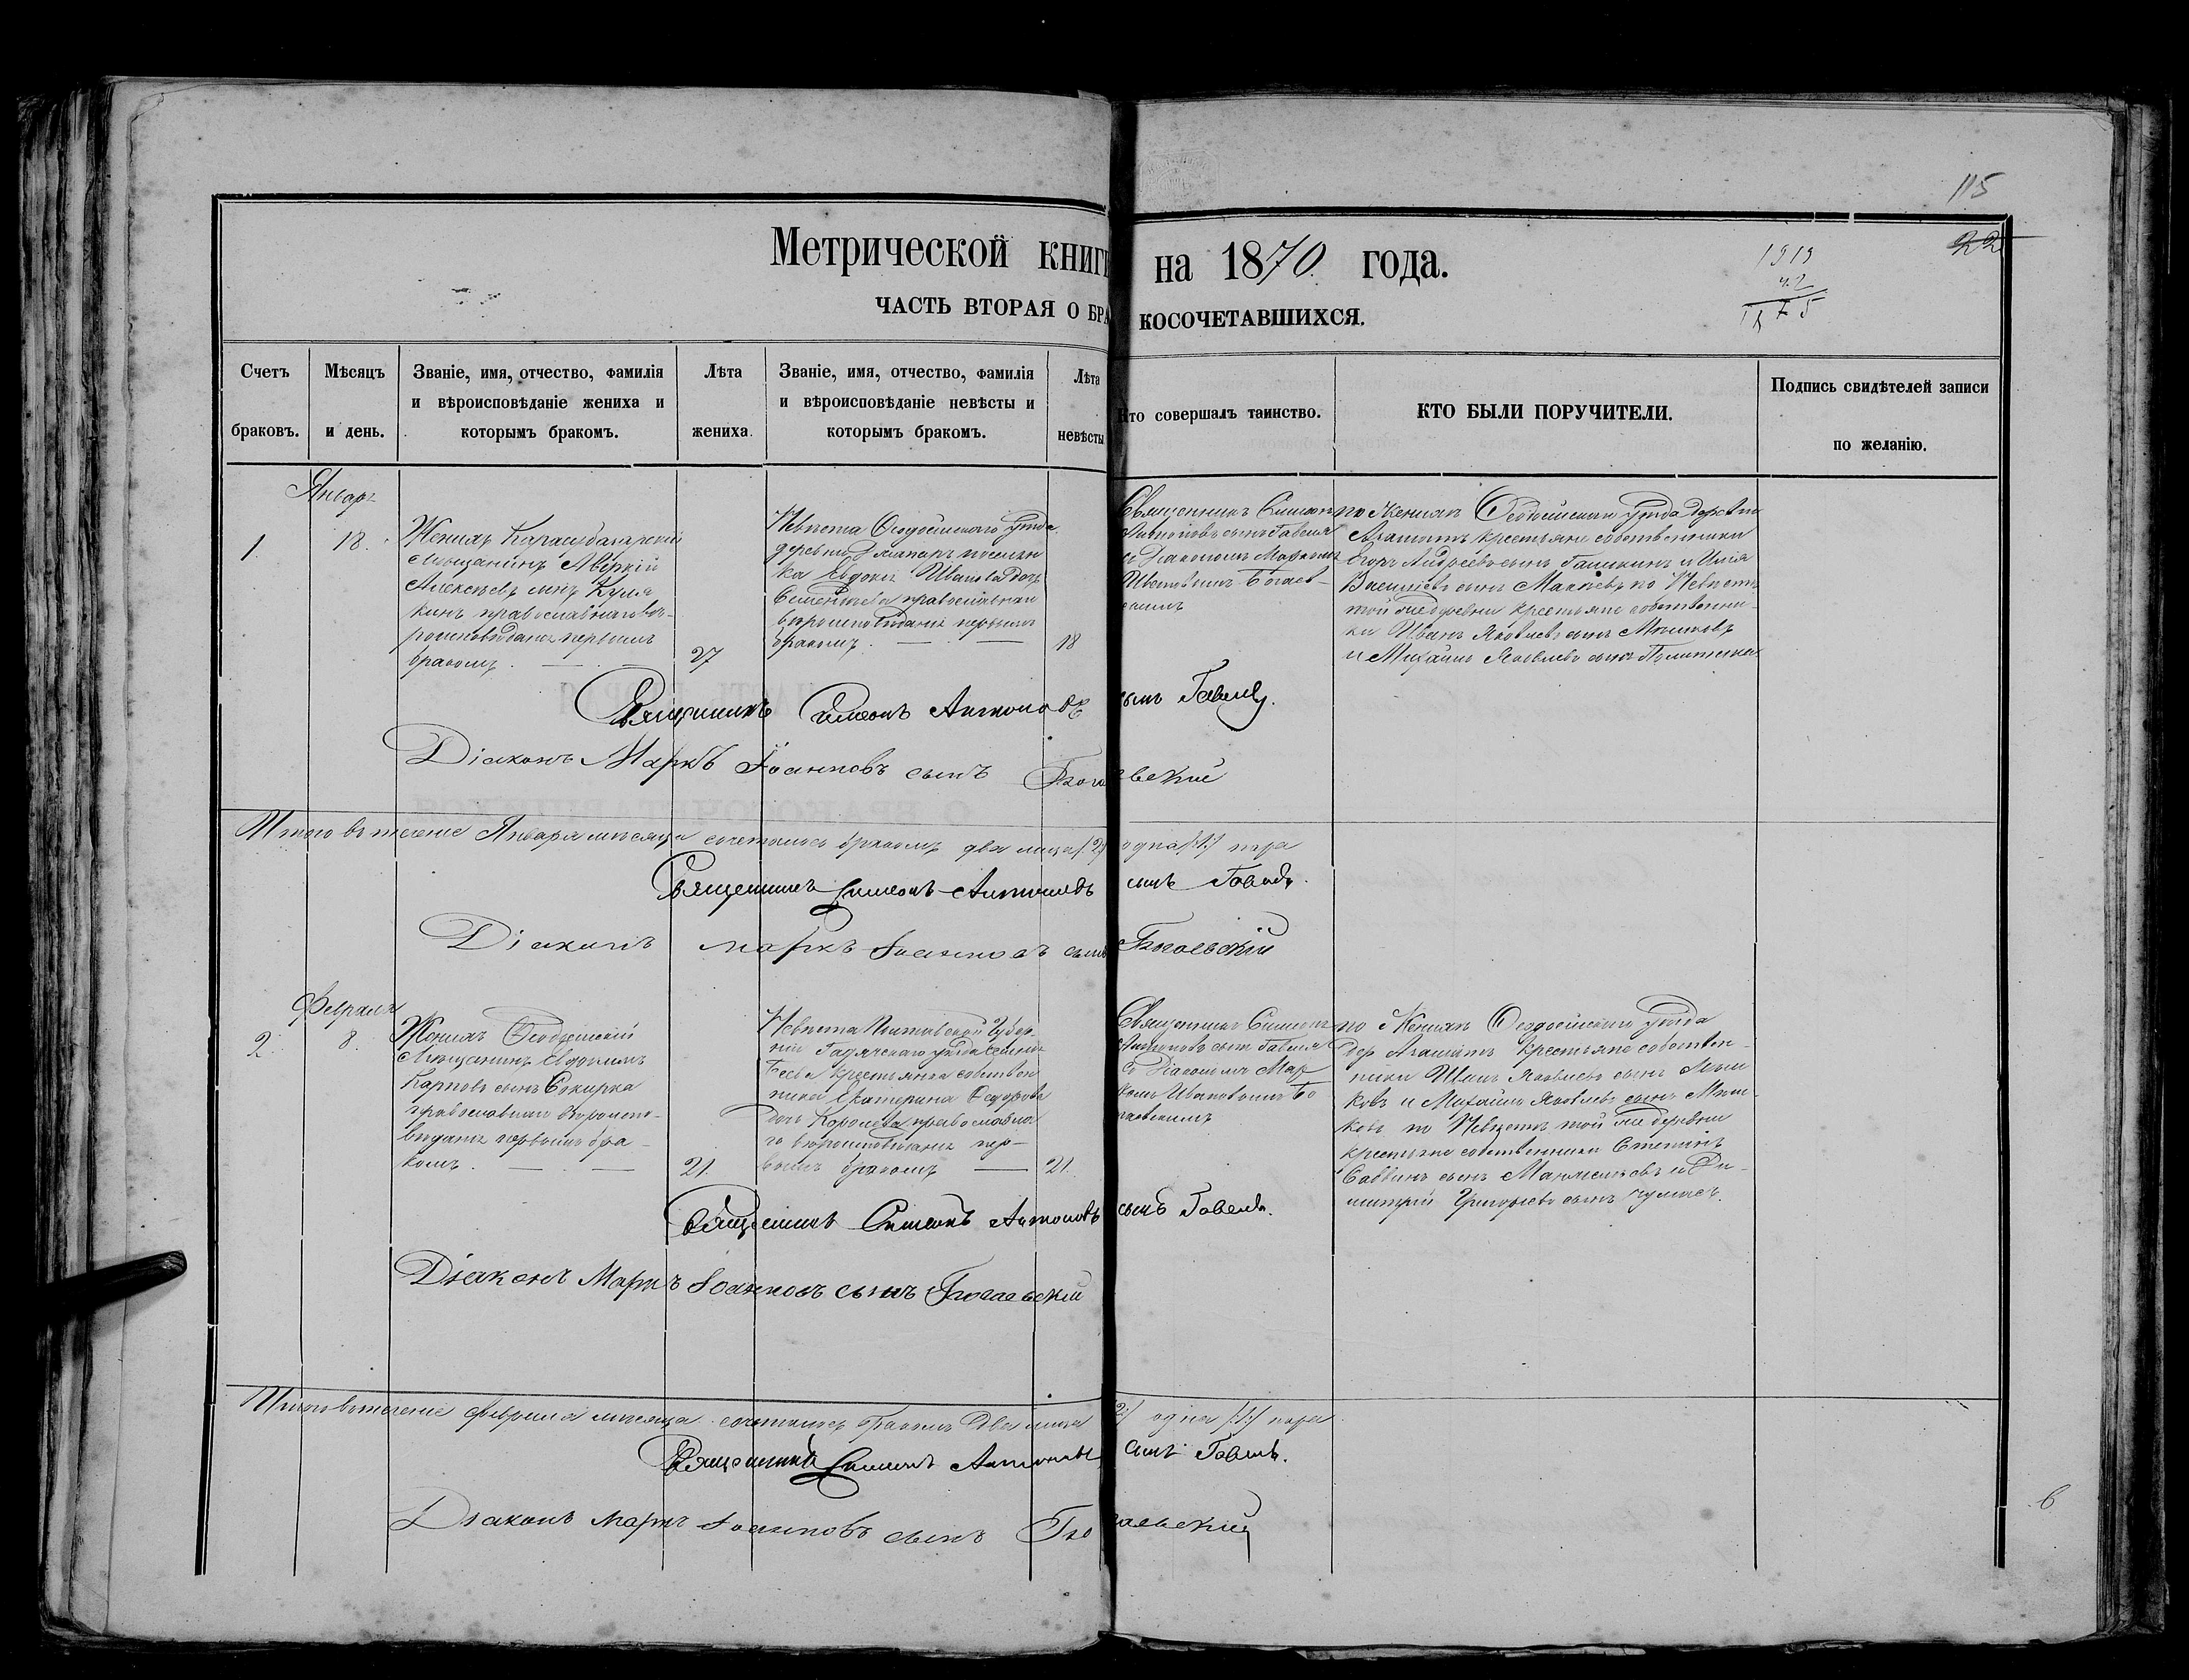 115
22
Метрической книги на 1870 года.
1919
ЧАСТЬ ВТОРАЯ О БРАКОСОЧЕТАВШИХСЯ.
Счетъ браковъ.
Мѣсяцъ и день.
Званіе, имя, отчество, фамилія
и вѣроисповѣданіе жениха и
которымъ бракомъ.
Лѣта
жениха.
Званіе, имя, отчество, фамилія
и вѣроисповѣданіе невѣсты и
которымъ бракомъ.
Лѣта
невѣсты
Кто совершалъ таинство.
КТО БЫЛИ ПОРУЧИТЕЛИ.
Подпись свидѣтелей записи
по желанію.
Январь
1.
18.
Женихъ Карасубазарскій
мѣщанинъ Аверкій
Алексѣевъ сынъ Куля
кинъ православнаго вѣ-
роисповѣданія первымъ
бракомъ.
27
Невѣста Ѳеодосійскаго уѣзда
деревни поселян
ка Евдокія Иванова дочь
православнаго
вѣроисповѣданія первымъ
бракомъ.
18
Священникъ Симеонъ
Антоновъ сынъ Гавель
съ Діакономъ Маркомъ
Ивановымъ Богаев-
скимъ
по Женихѣ Ѳеодосійскаго уѣзда дерев
крестьяне собственники
Егоръ Андреевъ сынъ и Илья
сынъ по Невѣстѣ
той же деревни крестьяне собственни-
ки Иванъ Яковлевъ сынъ Мышковъ
и Михаилъ Яковлевъ сынъ
Священникъ Симеонъ Антоновъ сынъ Гавель.
Діаконъ Маркъ Іоанновъ сынъ Богаевскій
Итого въ теченіе Января мѣсяца сочеталось бракомъ два лица /:2:/ одна /:1:/ пара
Священникъ Симеонъ Антоновъ сынъ Гавель.
Діаконъ Маркъ Іоанновъ сынъ Богаевскій
Февраль
2.
8.
Женихъ Ѳеодосійскій
Мѣщанинъ Евдокимъ
Карповъ сынъ Сокирка
православнаго вѣроиспо-
вѣданія первымъ бра-
комъ.
21.
Невѣста Полтавской Губер-
ніи Гадячскаго уѣзда
крестьянка собствен
ница Екатерина Ѳедорова
дочь Королева православна
го вѣроисповѣданія пер-
вымъ бракомъ
21.
Священникъ Симеонъ
Антоновъ сынъ Гавель
съ Діакономъ Мар
комъ Ивановымъ Бо
гаевскимъ
по Женихѣ Ѳеодосійскаго уѣзда
дер. крестьяне собствен-
ники Иванъ Яковлевъ сынъ Мыш
ковъ и Михаилъ Яковлевъ сынъ Мыш-
ковъ по Невѣстѣ той же деревни
крестьяне собственники Степанъ
Саввинъ сынъ и Ди-
митрій Григорьевъ сынъ
Священникъ Симеонъ Антоновъ сынъ Гавель.
Діаконъ Маркъ Іоанновъ сынъ Богаевскій
Итого въ теченіе февраля мѣсяца сочеталось бракомъ два лица /:2:/ одна /:1:/ пара
Священникъ Симеонъ Антоновъ сынъ Гавель.
Діаконъ Маркъ Іоанновъ сынъ Богаевскій
6